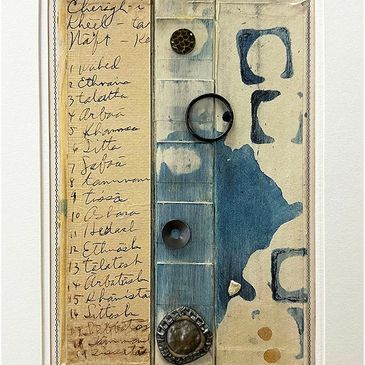 Cheragh-i
Kheel - tar
Naft - Ka
1 wahed
2 Ethnana
3 talatta
4 Arbaa
5 Khamsa
6 Sitta
7 Sabaa
8
9 tissa
10 Ashara
11 Hedash
12 Ethnash
13 talatash
14 Arbatash
15 Khamista
16 Sittash
17
18
19